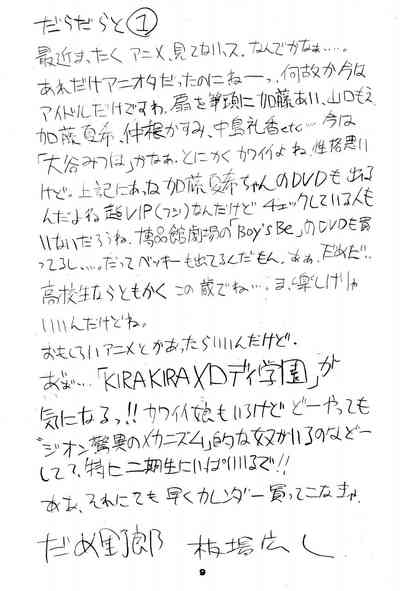 だらだらと①
最近まったくアニメ見てないス。なんでかなぁ……。
あれだけアニオタだったのにねーっ。何故か今は
アイドルだけですわ。扇を筆頭に加藤あい、山口もえ
加藤夏希、仲根かすみ、中島礼香etc… 今は
「大谷みつほ」かなぁ。とにかくカワイイよね。性格悪い
けど。上記にあるね加藤夏希ちゃんのDVDも出る
んだよね 超VIP(フン)なんだけど チェックしている人も
いないだろうね。博品館劇場の「Boy's Be」のDVDも買
ってるし……。だってベッキーも出てるんだもん。ああ、だめだ…
高校生ならともかく この歳でね…。ま、楽しけりゃ
いいんだけどね。
おもしろいアニメとかあったらいいんだけど。
あぁ…「KIRA KIRA メロディ学園」が
気になるっ!! カワイイ娘もいるけど どーやっても
"ジオン驚異のメカニズム"的な奴がいるのなどー
してて、特に二期生にいっぱいいるで!!
ああ、それにても 早くカレンダー買ってこなきゃ。
だめ野郎 板場広し
9